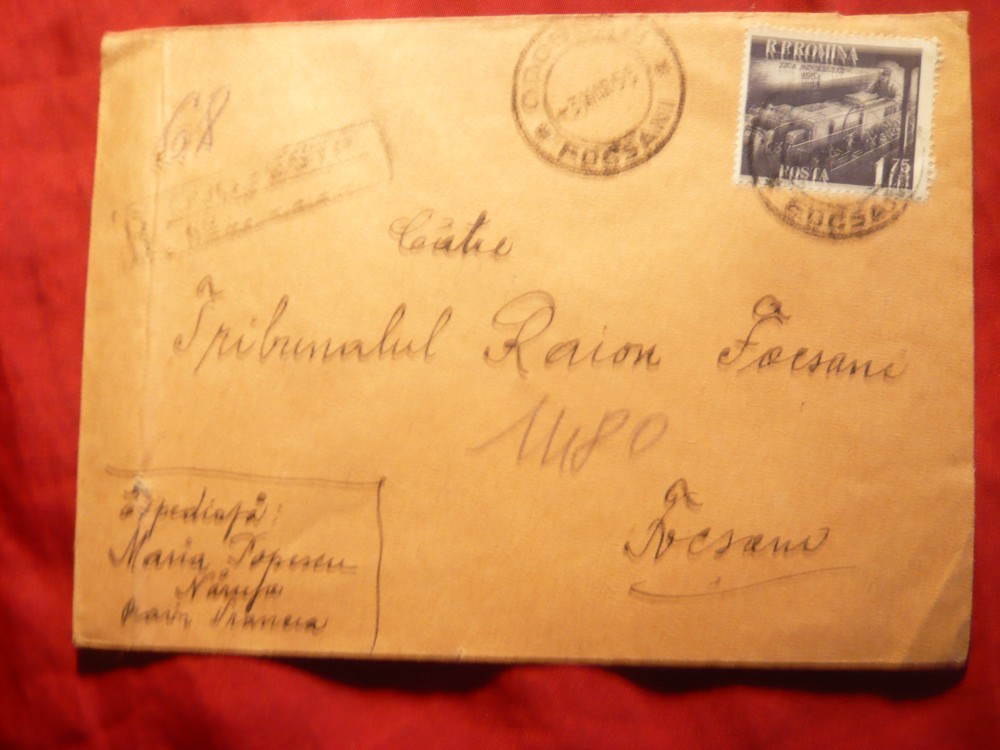 R.P.ROMINA
POSTA
75
FOCSANI
FOCSANI
68
R
Către
Tribunalul Raion Focsani
1480
Focsani
Expediază:
Maria Popescu
Năruja
Vrancea